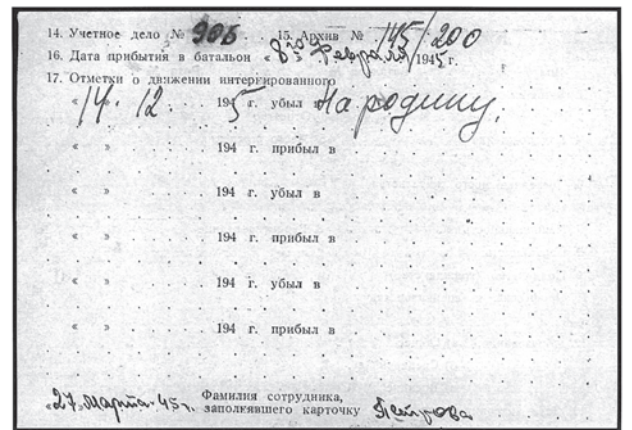 14. Учетное дело № 906. 15. Архив № 145/200
16. Дата прибытия в батальон « 8го » Февраля 1945 г.
17. Отметки о движении интернированного
« 14 » 12 1945 г. убыл На родину.
« » 194 г. прибыл в
« » 194 г. убыл в
« » 194 г. прибыл в
« » 194 г. убыл в
« » 194 г. прибыл в
«27» Марта 45 г. Фамилия сотрудника,
заполнявшего карточку Петрова